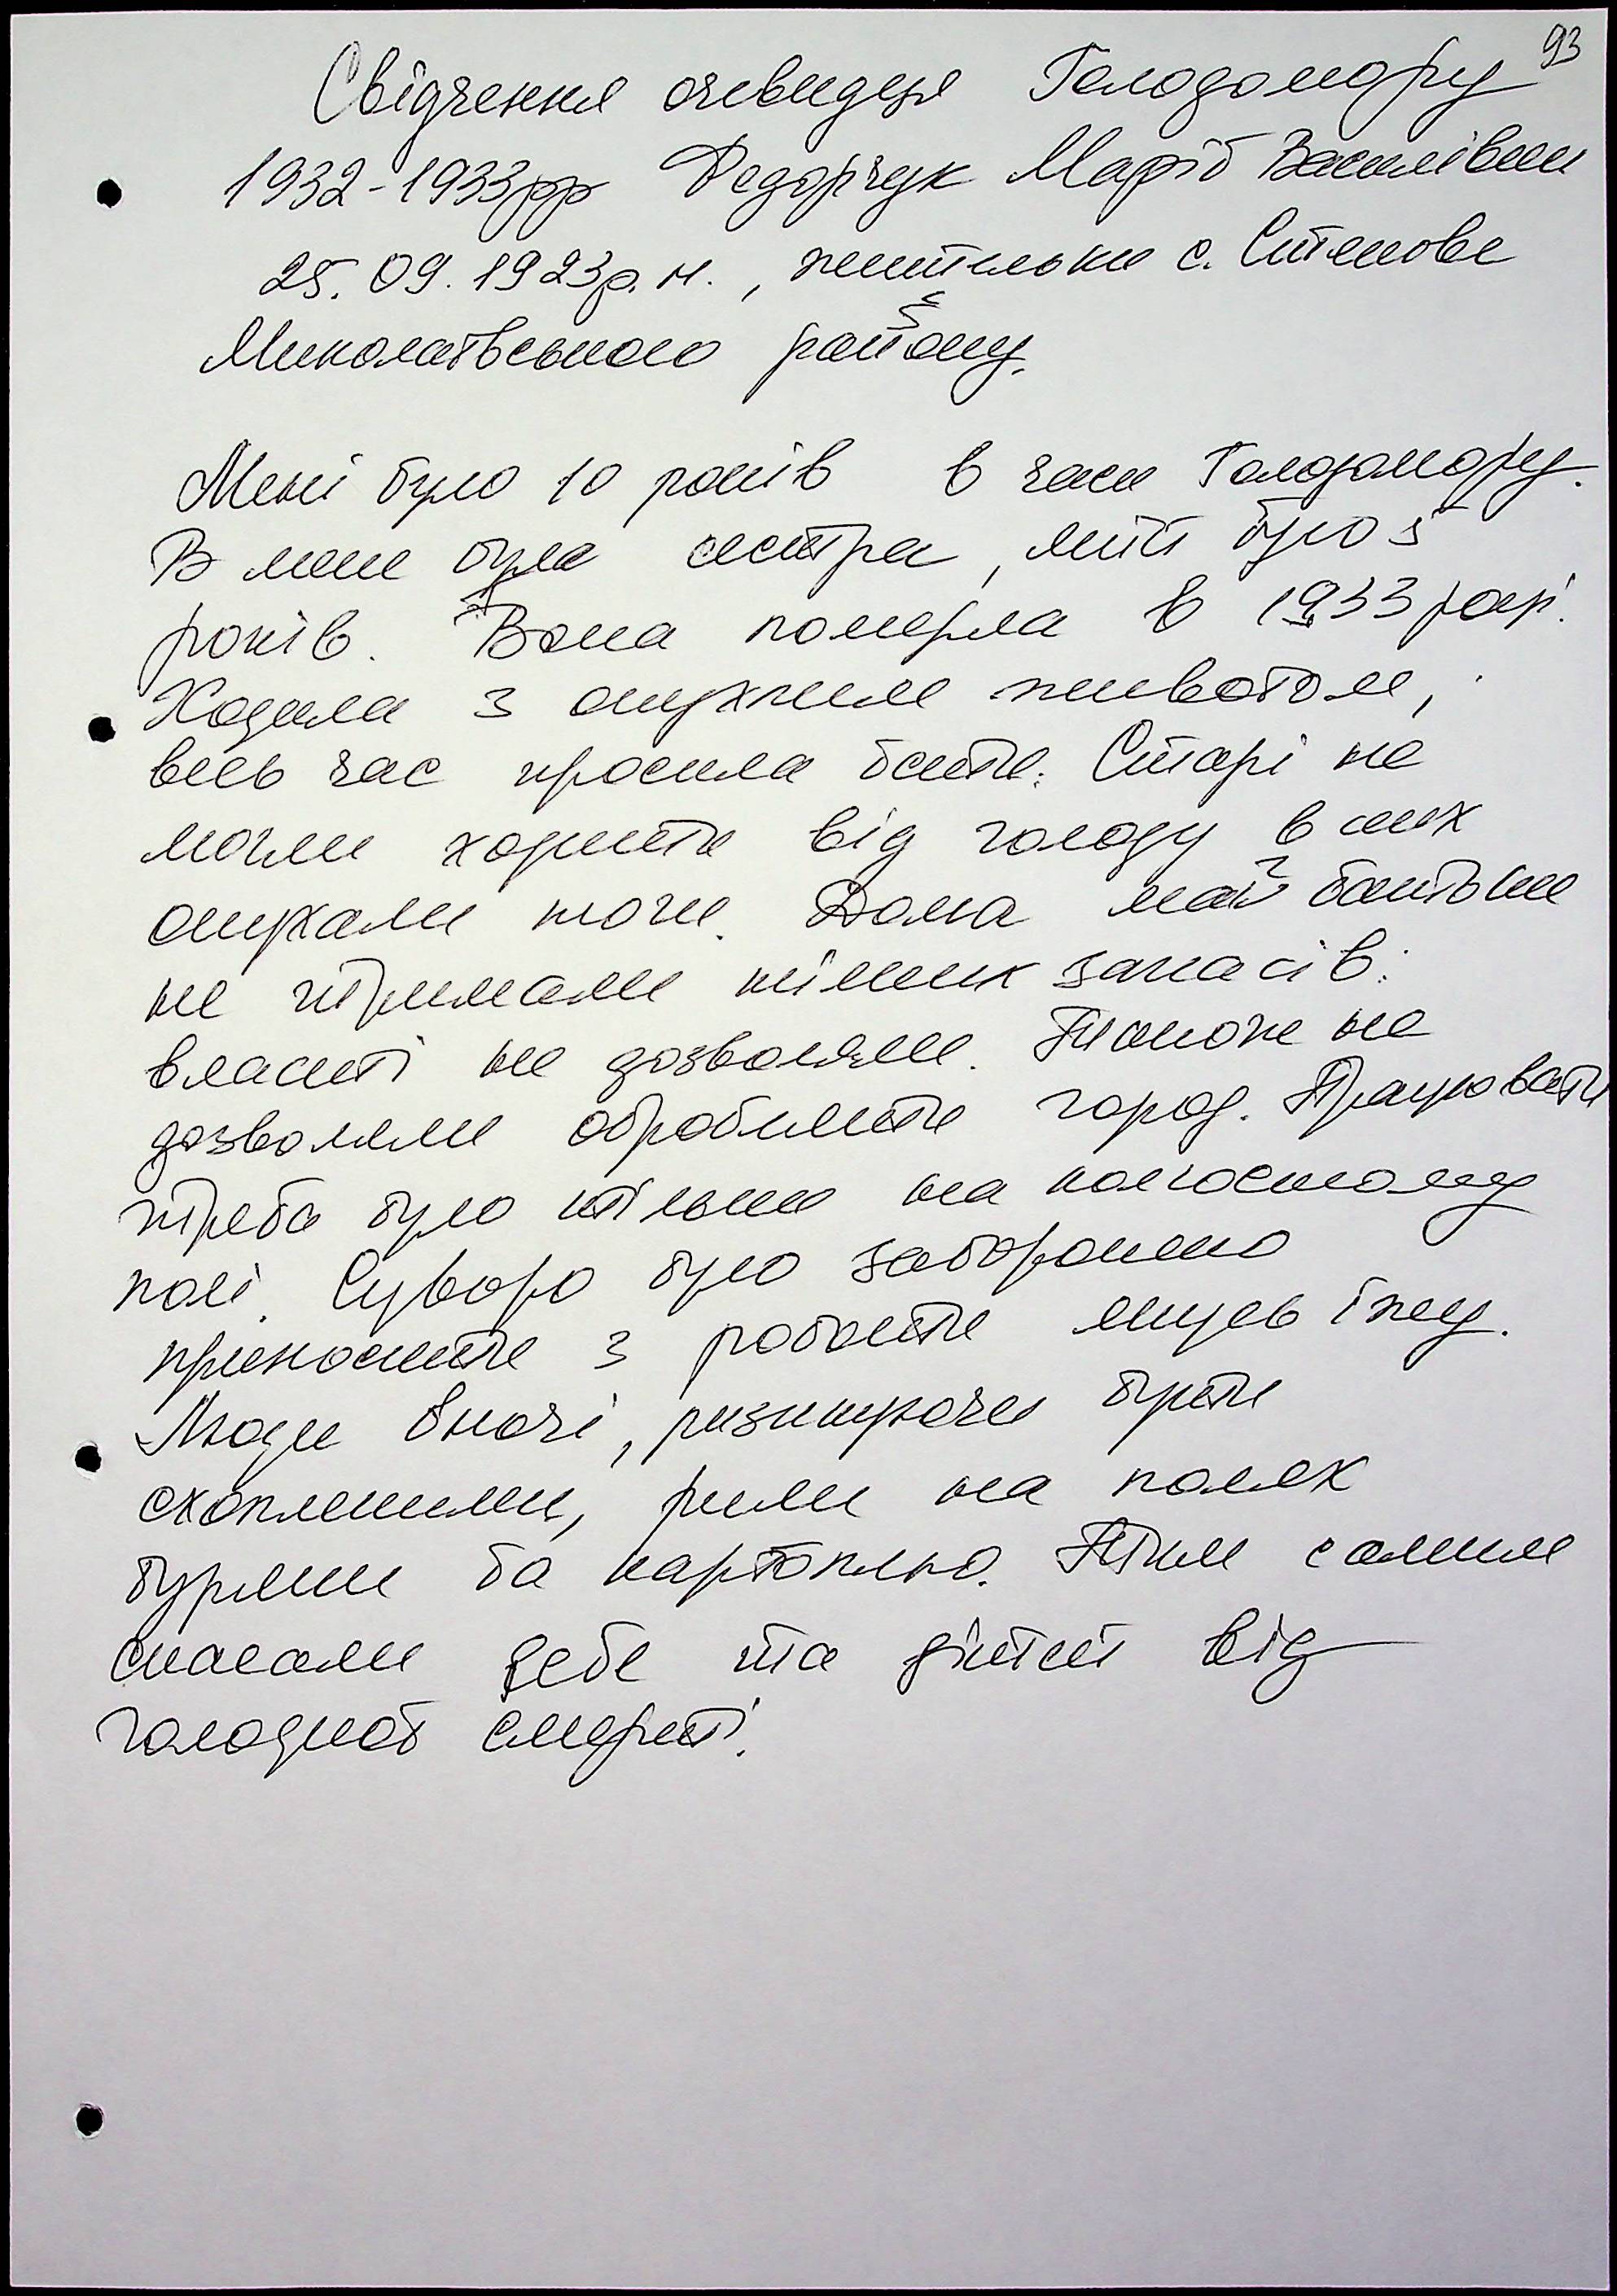 93
Свідчення очевидця Голодомору
1932-1933рр Федорчук Марії Василівни
25.09.1923р.н., жительки с. Степове
Миколаївського району.
Мені було 10 років в часи Голодомору.
В мене була сестра, їй було 5
років. Вона померла в 1933 році.
Ходила з опухлим животом,
весь час просила їсти. Старі не
могли ходити від голоду в них
опухали ноги. Дома мої батьки
не тримали ніяких запасів:
власті не дозволяли. Також не
дозволяли обробляти город. Працювати
треба було тільки на колгоспному
полі. Суворо було заборонено
приносити з роботи якусь їжу.
Люди вночі, ризикуючи бути
схопленими, рили на полях
буряки та картоплю. Тим самим
спасали себе та дітей від
голодної смерті.